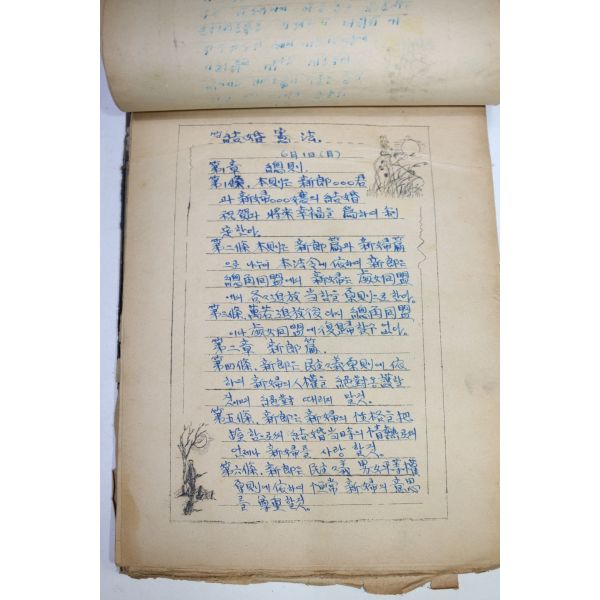 結婚憲法.
6月1日(月)
第1章 總則.
第1條, 本則은 新郎 ○○○君
과 新婦 ○○○孃의 結婚
祝賀와 將來幸福을 爲하여 制
定한다.
第二條 本則은 新郎篇과 新婦篇
으로 나누며 本法令에 依하여 新郎는
總角同盟에서 新婦는 處女同盟
에서 各各 追放 당함을 原則으로 한다.
第三條, 萬若 追放後 다시 總角同盟
이나 處女同盟에 復歸할수 없다.
第二章 新郎篇.
第四條, 新郎는 民主主義原則에 依
하여 新婦의 人權을 絕對 擁護할
것이며 絕對 때리지 말것.
第五條, 新郎는 新婦의 性格을 把
握함으로써 結婚當時의 情熱로써
언제나 新婦를 사랑할것.
第六條, 新郎는 民主主義 男女平等權
原則에 依하여 恒常 新婦의 意思
를 尊重할것.